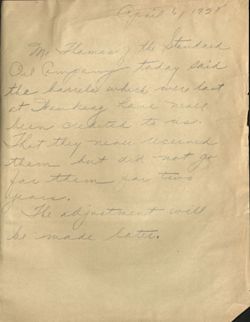 April 6, 1928
Mr Thomas, of the Standard
Oil Company today said
the barrels which were lost
at Hankey have never
been credited to us.
That they never received
them but did not go
for them for two
years.
The adjustment will
be made later.